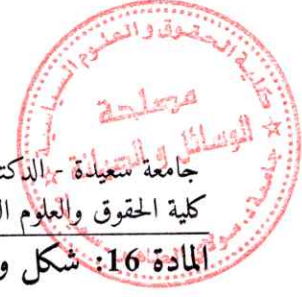 كلية الحقوق والعلوم السياسية
مصلحة
الوسائل والصيانة
جامعة سعيدة - الدكت
كلية الحقوق والعلوم ال
المادة 16: شكل و